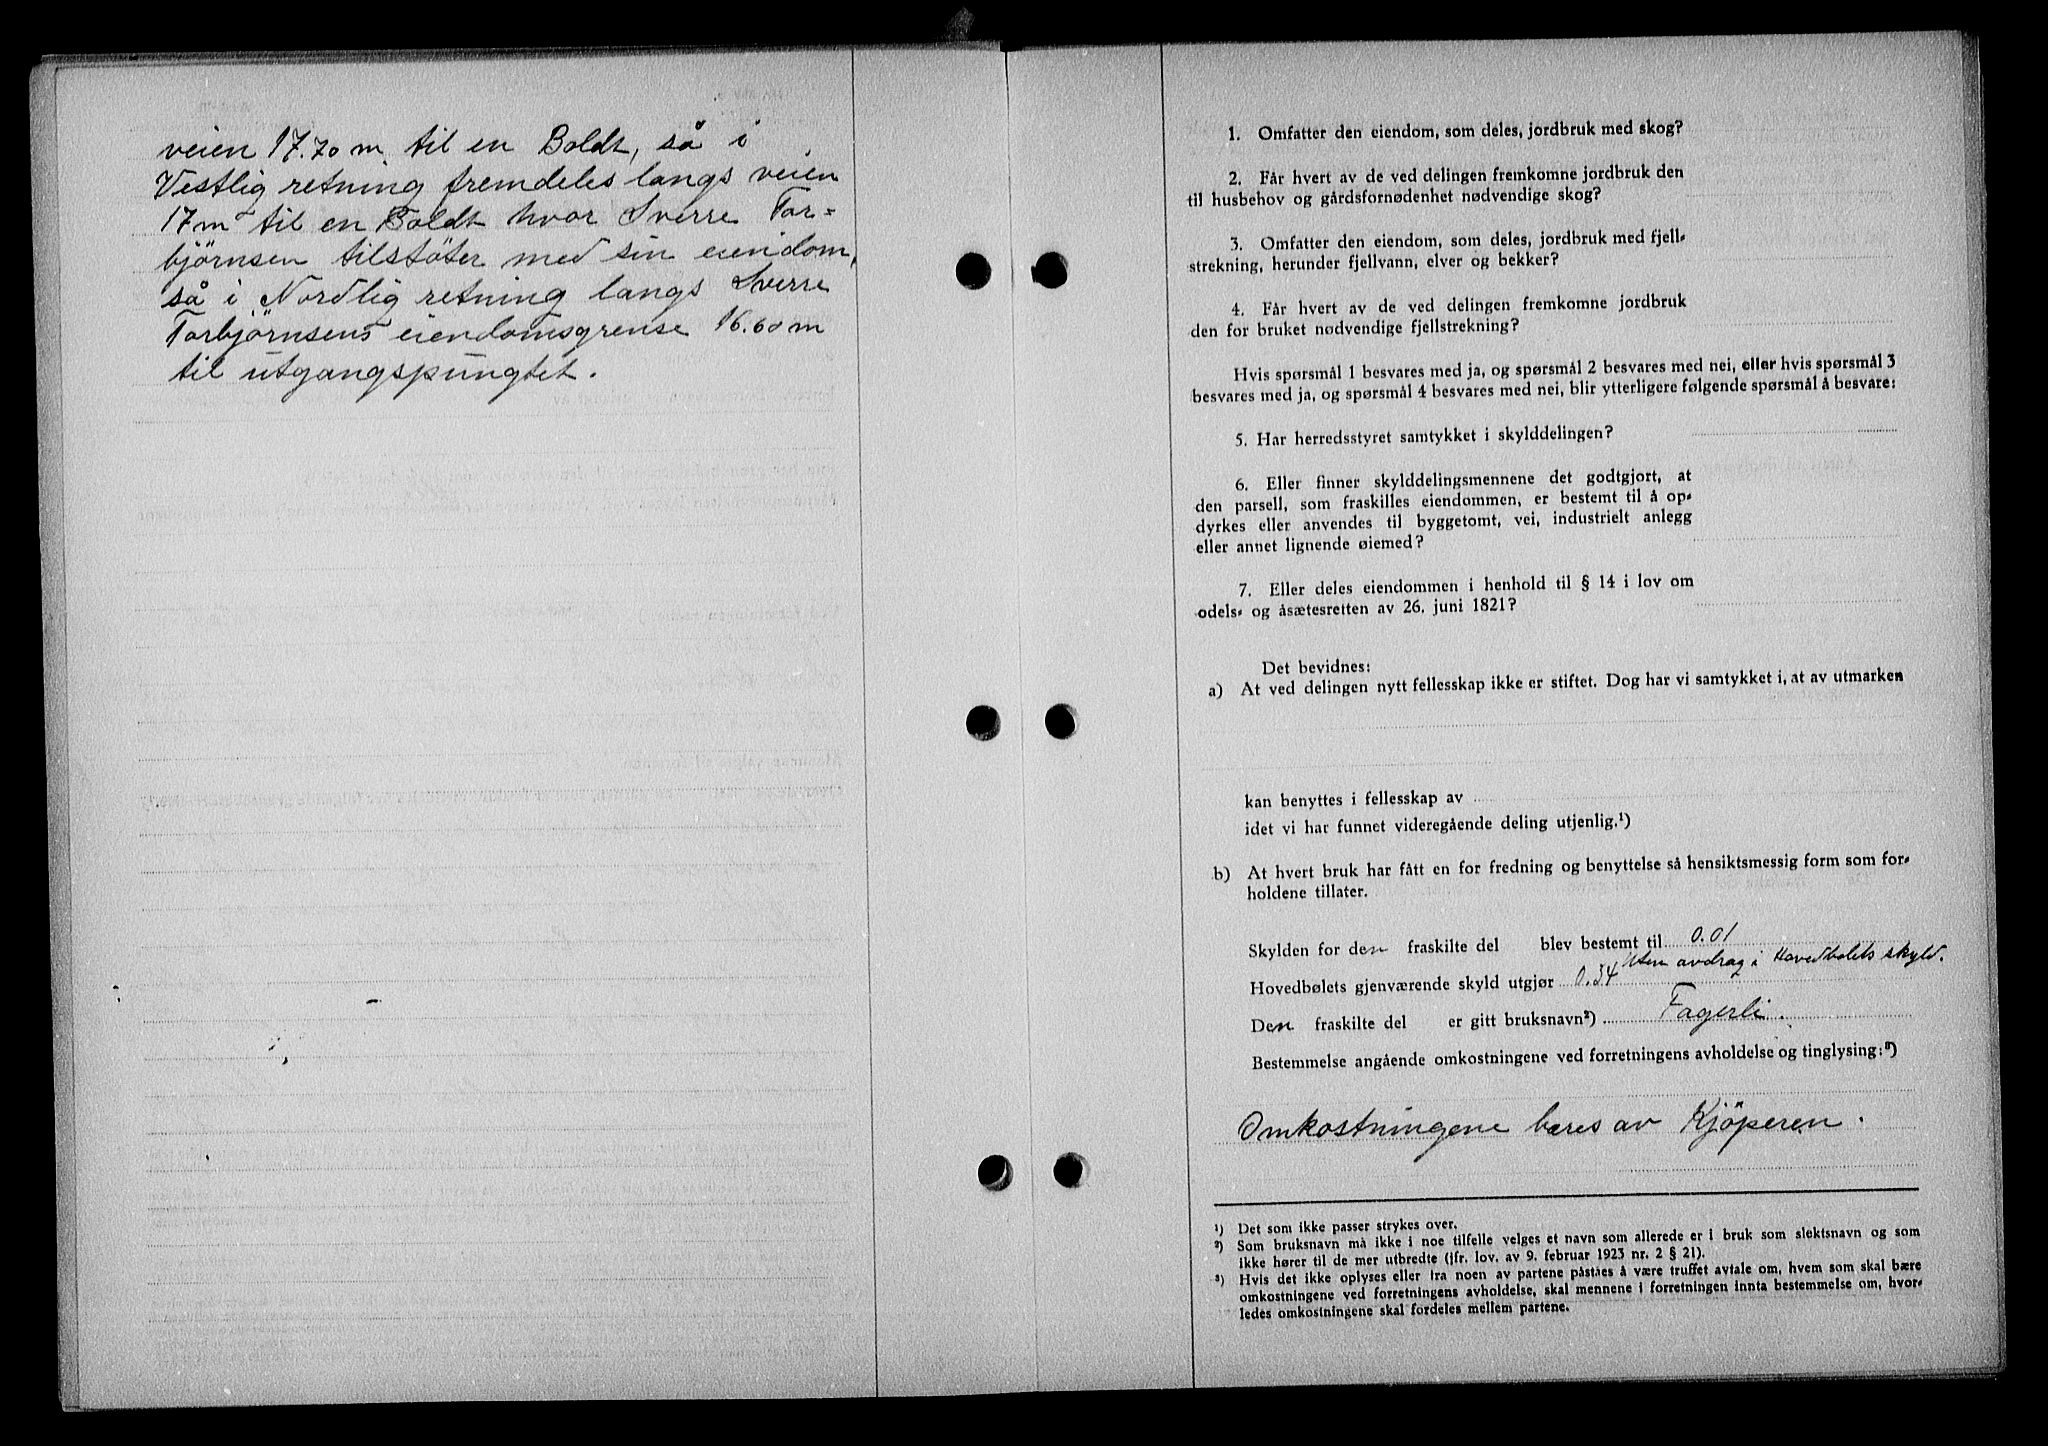 veien 17.70 m. til en Boldt, så i
Vestlig retning fremdeles langs veien
17 m til en Boldt hvor Sverre Tor=
bjørnsen tilstöter med sin eiendom,
så i Nordlig retning langs Sverre
Torbjörnsens eiendomsgrense 16.60 m
til utgangspungtet.
1. Omfatter den eiendom, som deles, jordbruk med skog?
2. Får hvert av de ved delingen fremkomne jordbruk den
til husbehov og gårdsfornødenhet nødvendige skog?
3. Omfatter den eiendom, som deles, jordbruk med fjell-
strekning, herunder fjellvann, elver og bekker?
4. Får hvert av de ved delingen fremkomne jordbruk
den for bruket nødvendige fjellstrekning?
Hvis spørsmål 1 besvares med ja, og spørsmål 2 besvares med nei, eller hvis spørsmål 3
besvares med ja, og spørsmål 4 besvares med nei, blir ytterligere følgende spørsmål å besvare:
5. Har herredsstyret samtykket i skylddelingen?
6. Eller finner skylddelingsmennene det godtgjort, at
den parsell, som fraskilles eiendommen, er bestemt til å op-
dyrkes eller anvendes til byggetomt, vei, industrielt anlegg
eller annet lignende øiemed?
7. Eller deles eiendommen i henhold til § 14 i lov om
odels- og åsætesretten av 26. juni 1821?
Det bevidnes:
a) At ved delingen nytt fellesskap ikke er stiftet. Dog har vi samtykket i, at av utmarken
kan benyttes i fellesskap av
idet vi har funnet videregående deling utjenlig.¹)
b) At hvert bruk har fått en for fredning og benyttelse så hensiktsmessig form som for-
holdene tillater.
Skylden for den fraskilte del blev bestemt til 0.01
Uten avdrag i Hovedbølets skyld.
Hovedbølets gjenværende skyld utgjør 0.34
Den fraskilte del er gitt bruksnavn²) Fagerli.
Bestemmelse angående omkostningene ved forretningens avholdelse og tinglysing:³)
Omkostningene bæres av Kjöperen.
¹) Det som ikke passer strykes over.
²) Som bruksnavn må ikke i noe tilfelle velges et navn som allerede er i bruk som slektsnavn og som
ikke hører til de mer utbredte (jfr. lov. av 9. februar 1923 nr. 2 § 21).
³) Hvis det ikke oplyses eller fra noen av partene påstås å være truffet avtale om, hvem som skal bære
omkostningene ved forretningens avholdelse, skal mennene i forretningen innta bestemmelse om, hvor-
ledes omkostningene skal fordeles mellem partene.